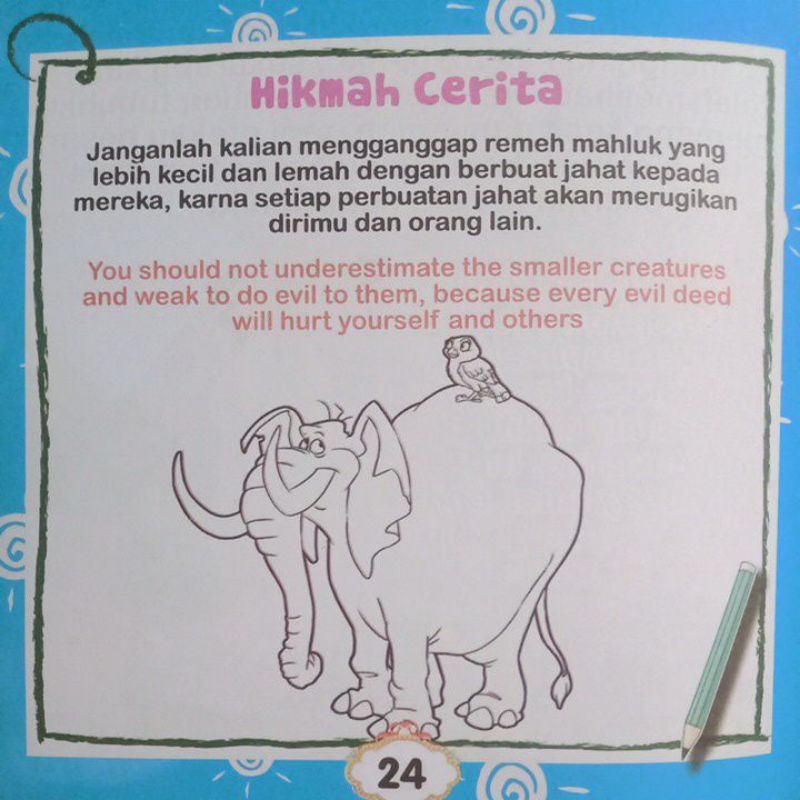 Hikmah Cerita
Janganlah kalian mengganggap remeh mahluk yang
lebih kecil dan lemah dengan berbuat jahat kepada
mereka, karna setiap perbuatan jahat akan merugikan
dirimu dan orang lain.
You should not underestimate the smaller creatures
and weak to do evil to them, because every evil deed
will hurt yourself and others
24